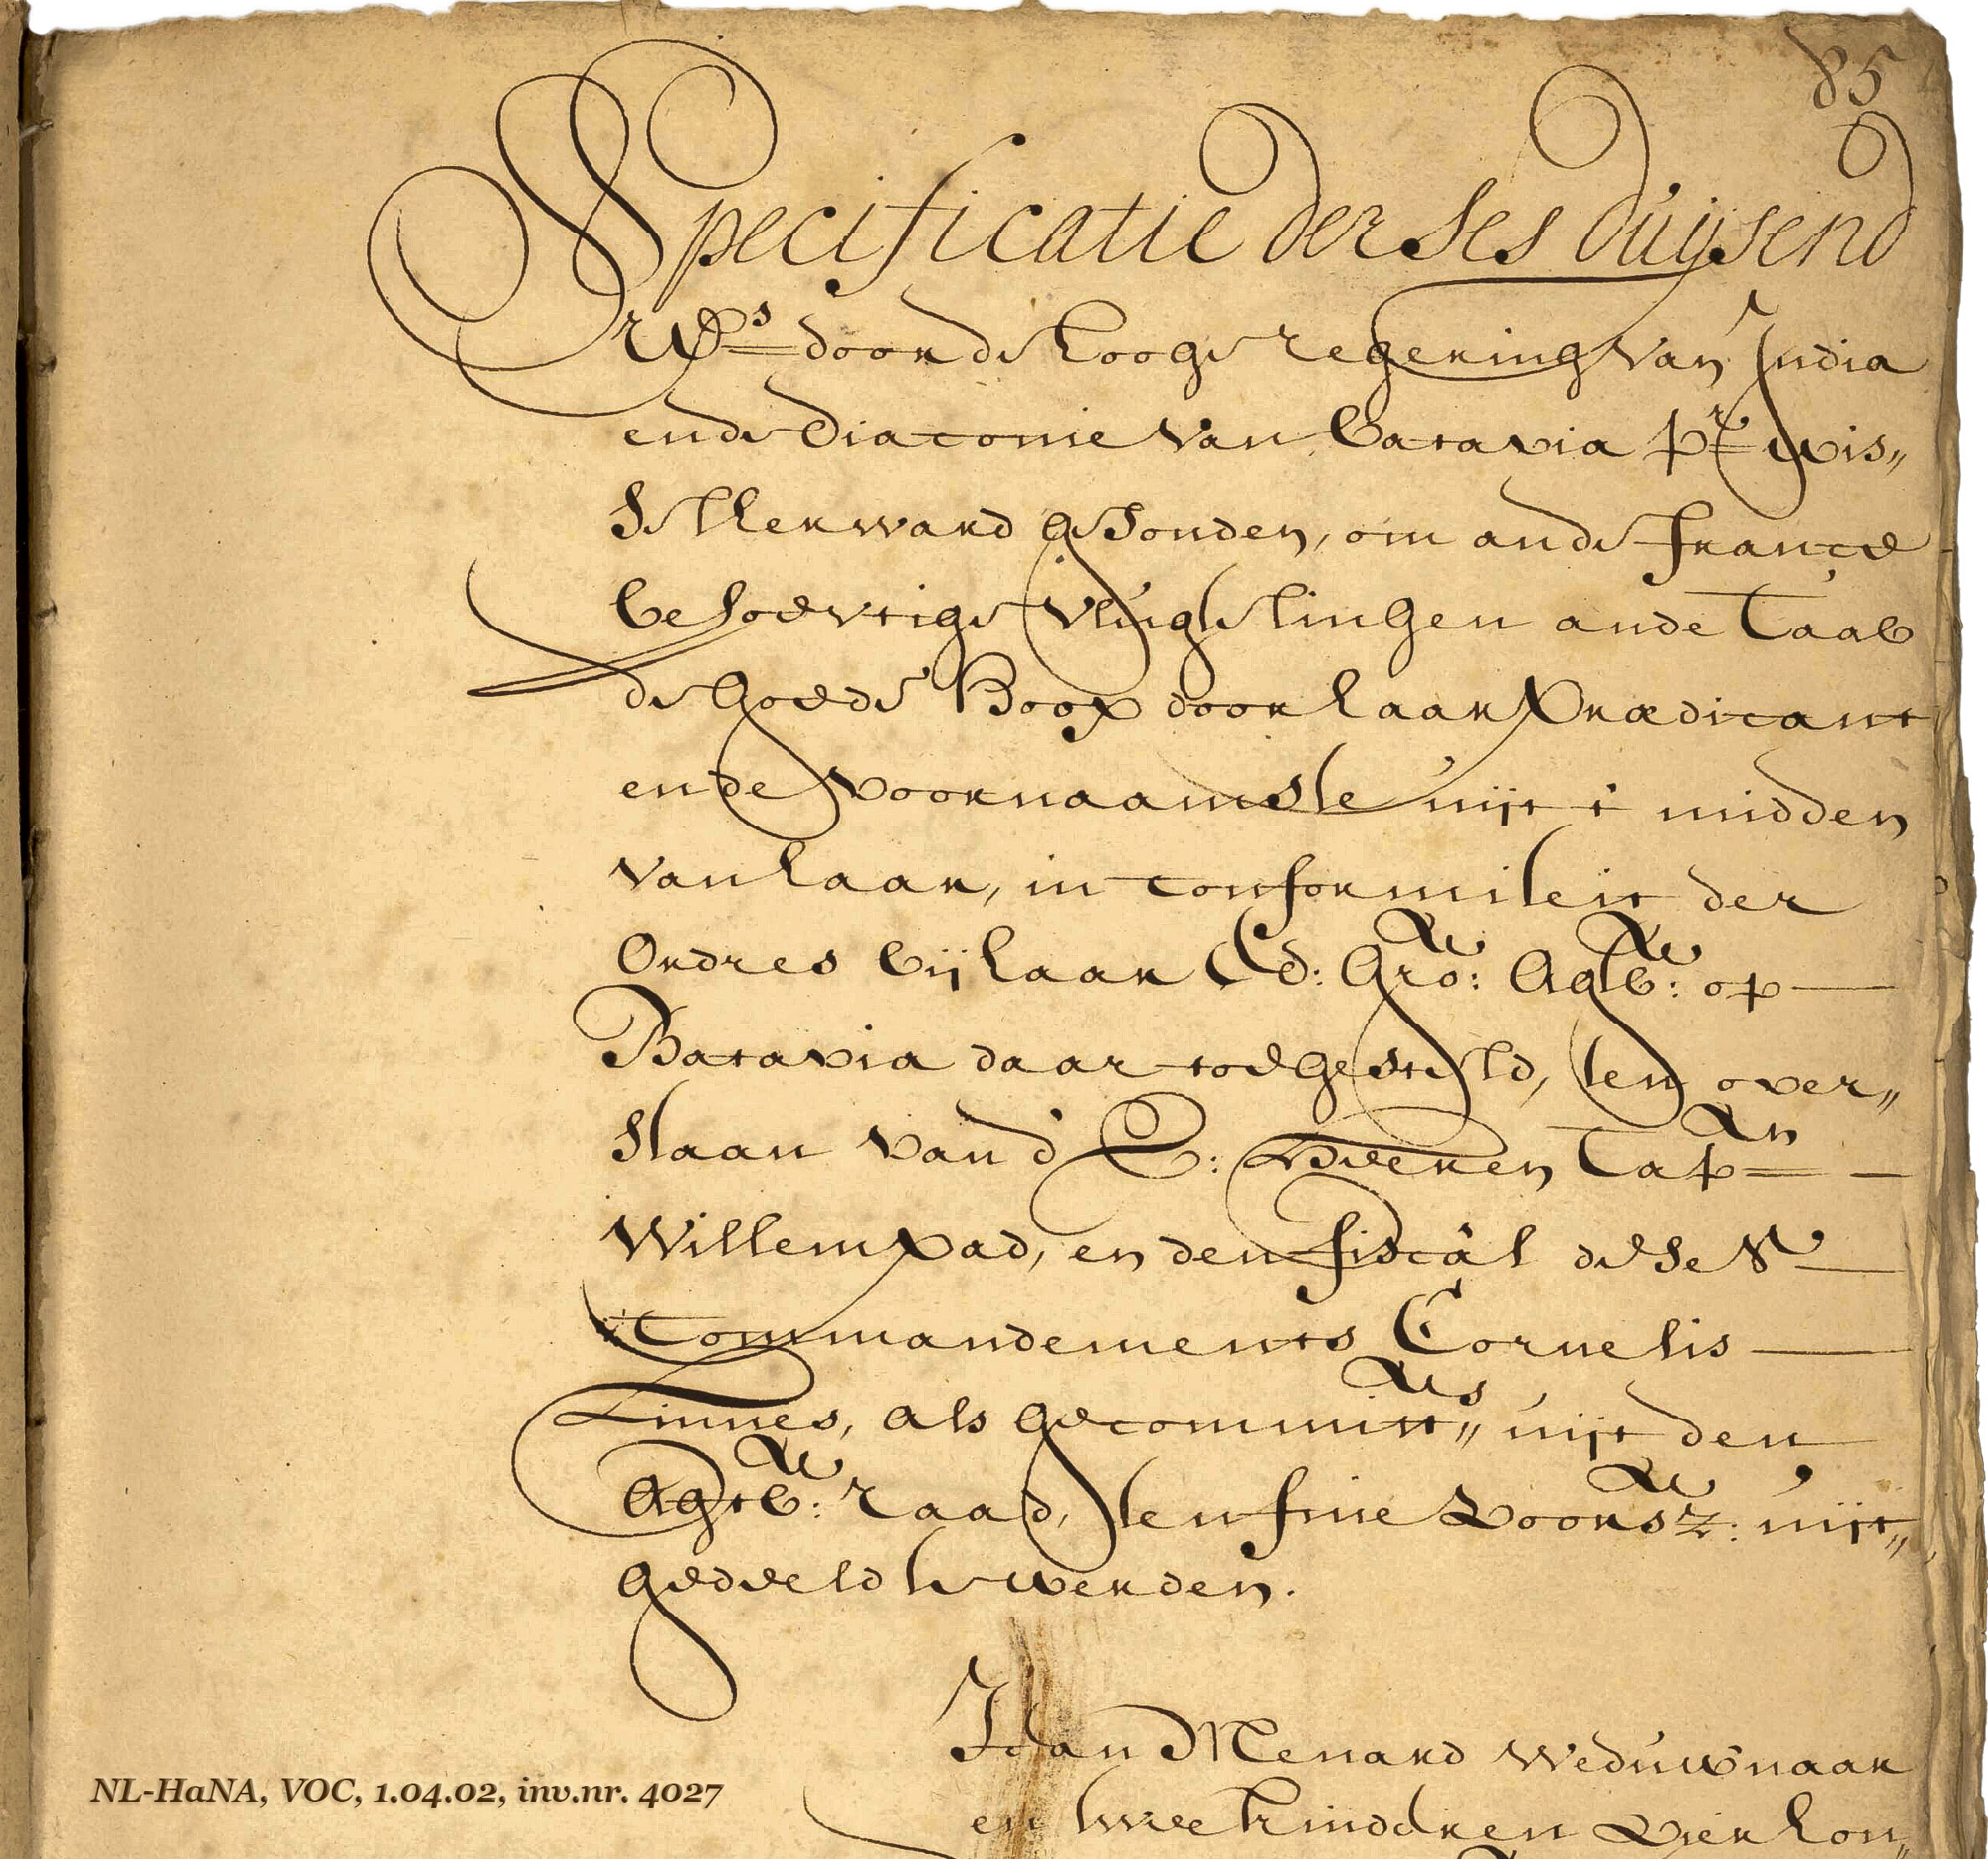 85
Specificatie der ses duijsend
rds door de hooge regering van India
ende diaconie van Batavia pr wis„
sel herward gesonden, om an de france
behoevtige vlughtelingen ande Caab
de goede Hoop door haar Prædicant
ende voornaamste uijt 't midden
van haar, in conformiteit der
Ordres bij haar Ed: Gro: Agtb: op
Batavia daar toe gesteld, ten over„
staan van d' E: Heeren Capn
Willem Pad, en den fiscâl deses
Commandements Cornelis
Linnes, als gecommitts„ uijt den
Agtb: raad, ten fine voorsz: uijt„
gedeeld te werden.
Jean Menard weduwnaar
en twee kinderen vier hon„
NL-HaNA, VOC, 1.04.02, inv.nr. 4027